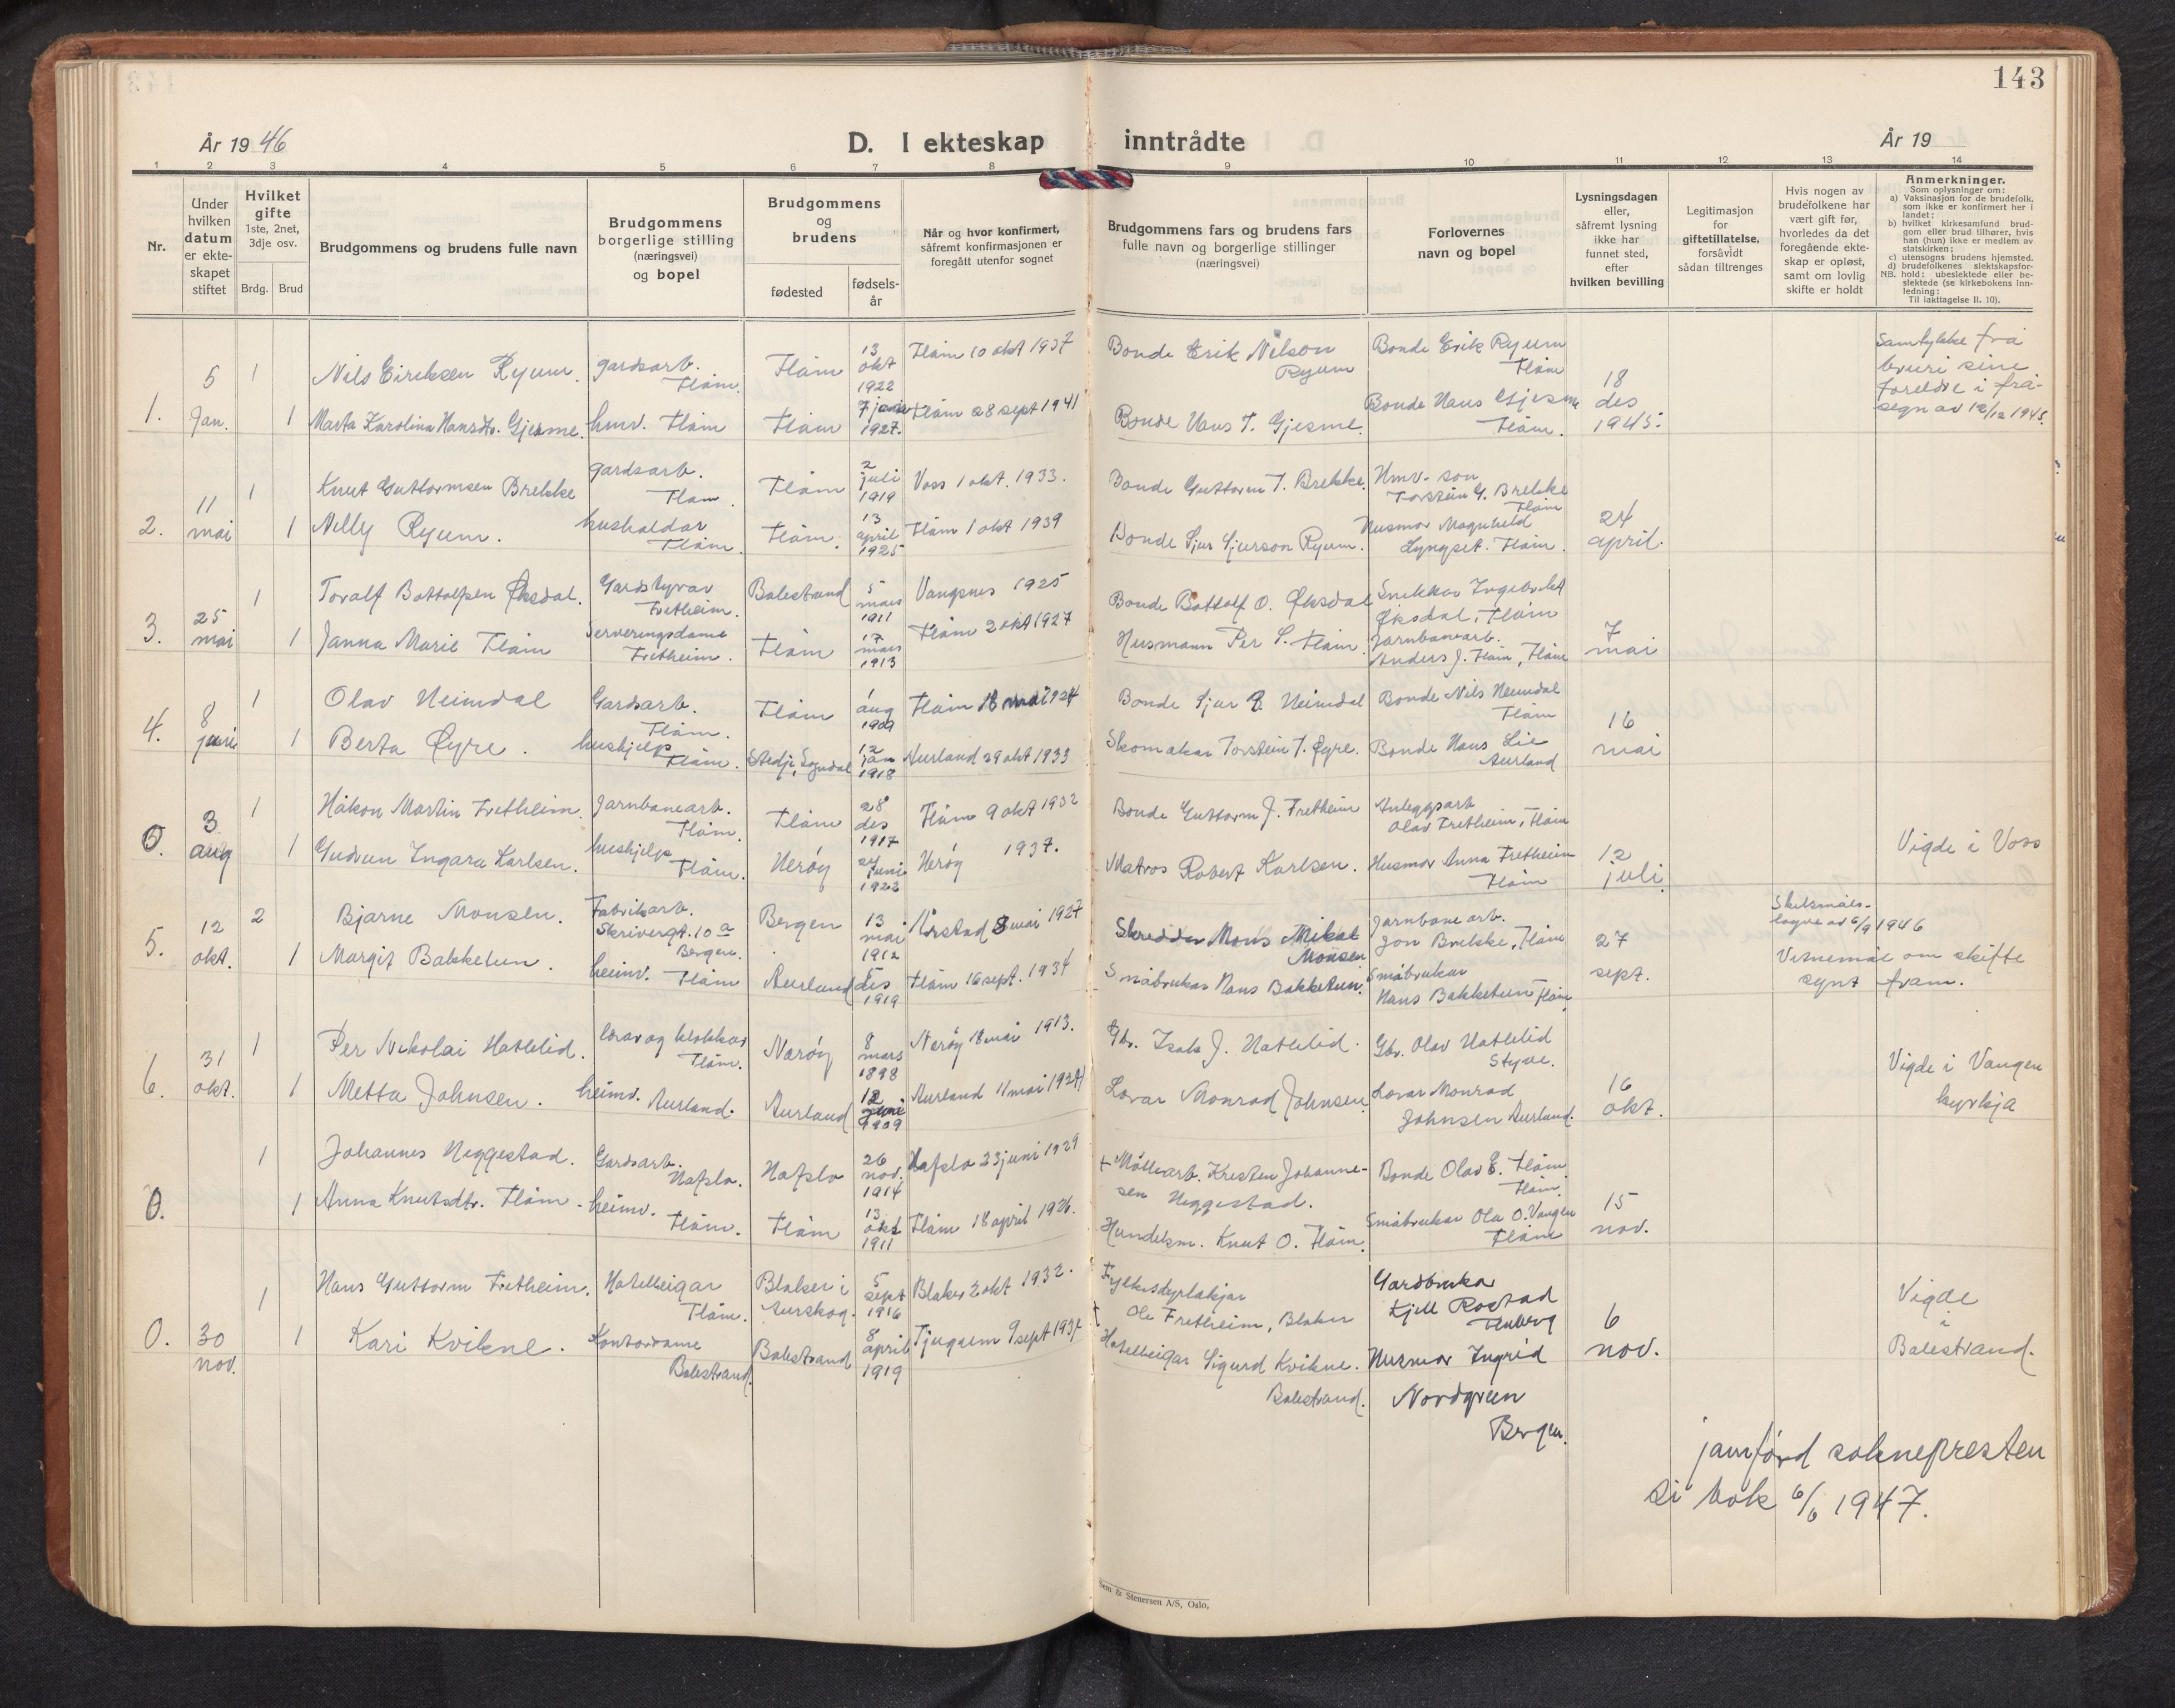 143
År 19 46
D. I ekteskap inntrådte
År 19
1 2 3 4 5 6 7 8 9 10 11 12 13 14
Nr.
Under hvilken datum er ekte-skapet stiftet
Hvilket gifte 1ste, 2net, 3dje osv.
Brdg. Brud
Brudgommens og brudens fulle navn
Brudgommens borgerlige stilling (næringsvei) og bopel
Brudgommens og brudens
fødested
fødsels-år
Når og hvor konfirmert, såfremt konfirmasjonen er foregått utenfor sognet
Brudgommens fars og brudens fars fulle navn og borgerlige stillinger (næringsvei)
Forlovernes navn og bopel
Lysningsdagen eller, såfremt lysning ikke har funnet sted, efter hvilken bevilling
Legitimasjon for giftetillatelse, forsåvidt sådan tiltrenges
Hvis nogen av brudefolkene har vært gift før, hvorledes da det foregående ekte-skap er opløst, samt om lovlig skifte er holdt
Anmerkninger.
Som oplysninger om:
a) Vaksinasjon for de brudefolk, som ikke er konfirmert her i landet;
b) hvilket kirkesamfund brud-gom eller brud tilhører, hvis han (hun) ikke er medlem av statskirken;
c) utensogns brudens hjemsted.
d) brudefolkenes slektskapsfor-hold: ubeslektede eller be-slektede (se kirkebokens inn-ledning:
NB.
Til iakttagelse II. 10).
1. 5 Jan.
1 Nils Eiriksen Ryum. gardsarb. Flåm. Flåm 13 okt 1922 Flåm 10 okt 1937 Bonde Erik Nilson Ryum Bonde Erik Ryum Flåm
1 Marta Karolina Hansdtr. Gjesme. hmv. Flåm Flåm 7 juni 1927. Flåm 28 sept 1941 Bonde Hans T. Gjesme. Bonde Hans Gjesme Flåm. 18 des 1945.
Samtykke frå bruri sine foreldre i frå-segn av 12/12 1945.
2. 11 mai
1 Knut Guttormsen Brekke gardsarb. Flåm. Flåm 2 juli 1919 Voss 1 okt. 1933. Bonde Guttorm T. Brekke. Hmv. son Torstein G. Brekke Flåm
1 Nelly Ryum. hushaldar Flåm. Flåm. 13 april 1925 Flåm 1 okt 1939 Bonde Sjur Sjurson Ryum. Husmor Magnhild Lyngset. Flåm. 24 april.
3. 25 mai
1 Toralf Bottolfsen Øksdal. Gardstyrar Fretheim. Balestrand 5 mars 1911 Vangsnes 1925 Bonde Bottolf O. Øksdal Snikkar Ingebrikt Øksdal, Flåm
1 Janna Marie Flåm Serveringsdame Fretheim. Flåm 17 mars 1913 Flåm 2 okt 1927 Husmann Per S. Flåm. Jarnbanearb. Anders J. Flåm, Flåm 7 mai
4. 8 juni
1 Olav Heimdal Gardsarb. Flåm. Flåm 1 aug 1909 Flåm 18 mai 1924 Bonde Sjur Heimdal Bonde Nils Heimdal Flåm
1 Berta Øyre. hushjelp Flåm. Stedje, Sogndal 12 jan 1918 Aurland 29 okt 1933 Skomakar Torstein T. Øyre. Bonde Hans Lie Aurland 16 mai
0. 3 aug
1 Håkon Martin Fretheim. Jarnbanearb. Flåm. Flåm 28 des 1917 Flåm 9 okt 1932 Bonde Guttorm J. Fretheim Anleggsarb Olav Fretheim, Flåm
1 Gudrun Ingara Karlsen. hushjelp Flåm. Herøy 27 juni 1923 Herøy 1937. Matros Robert Karlsen. Husmor Anna Fretheim Flåm 12 juli.
Vigde i Voss
5. 12 okt.
2 Bjarne Monsen. Fabrikarb. Skrivergt. 10 a Bergen. Bergen 13 mai 1912 Årstad 8 mai 1927 Skredder Mons Mikal Monsen Jarnbane arb. Jon Brekke, Flåm
1 Margit Bakketun. heimv. Flåm Aurland 5 des 1919 Flåm 16 sept. 1934 Småbrukar Hans Bakketun. Småbrukar Hans Bakketun Flåm 27 sept.
Skilsmåls-løyve av 6/9 1946
Vitnemål om skifte synt fram.
6. 31 okt.
1 Per Nikolai Hatlelid. lærar og klokkar Flåm. Nærøy 8 mars 1898 Nærøy 18 mai 1913. Gbr. Isak J. Hatlelid. Gbr. Olav Hatlelid Styve.
1 Metta Johnsen. heimv. Aurland. Aurland 12 juni 1909 Aurland 11 mai 1924 Lærar Monrad Johnsen. Lærar Monrad Johnsen Aurland. 16 okt.
Vigde i Vangen kyrkja
0.
1 Johannes Heggestad. Gardsarb. Hafslo. Hafslo 26 nov. 1914 Hafslo 23 juni 1929 + Møllearb. Kristen Johanne-sen Heggestad. Bonde Olav E. Flåm Flåm.
1 Anna Knutsdtr. Flåm. heimv. Flåm. Flåm 13 okt 1911 Flåm 18 april 1926. Handelsm. Knut O. Flåm. Småbrukar Ola O. Vangen Flåm 15 nov.
0. 30 nov.
1 Hans Guttorm Fretheim. Hotelleigar Flåm. Blaker i Aurskog. 5 sept 1916 Blaker 2 okt 1932. Fylkesdyrlækjar + Ole Fretheim, Blaker Gardbrukar Kjell Rostad
1 Kari Kvikne. Kontordame Balestrand. Balestrand 8 april 1919 Tjugum 9 sept 1934 Hotelleigar Sigurd Kvikne. Balestrand. Husmor Ingrid Nordgreen Bergen. 6 nov.
Vigde i Balestrand.
jamførd soknepresten si bok 6/6 1947.
Sem & Stenersen A/S, Oslo.